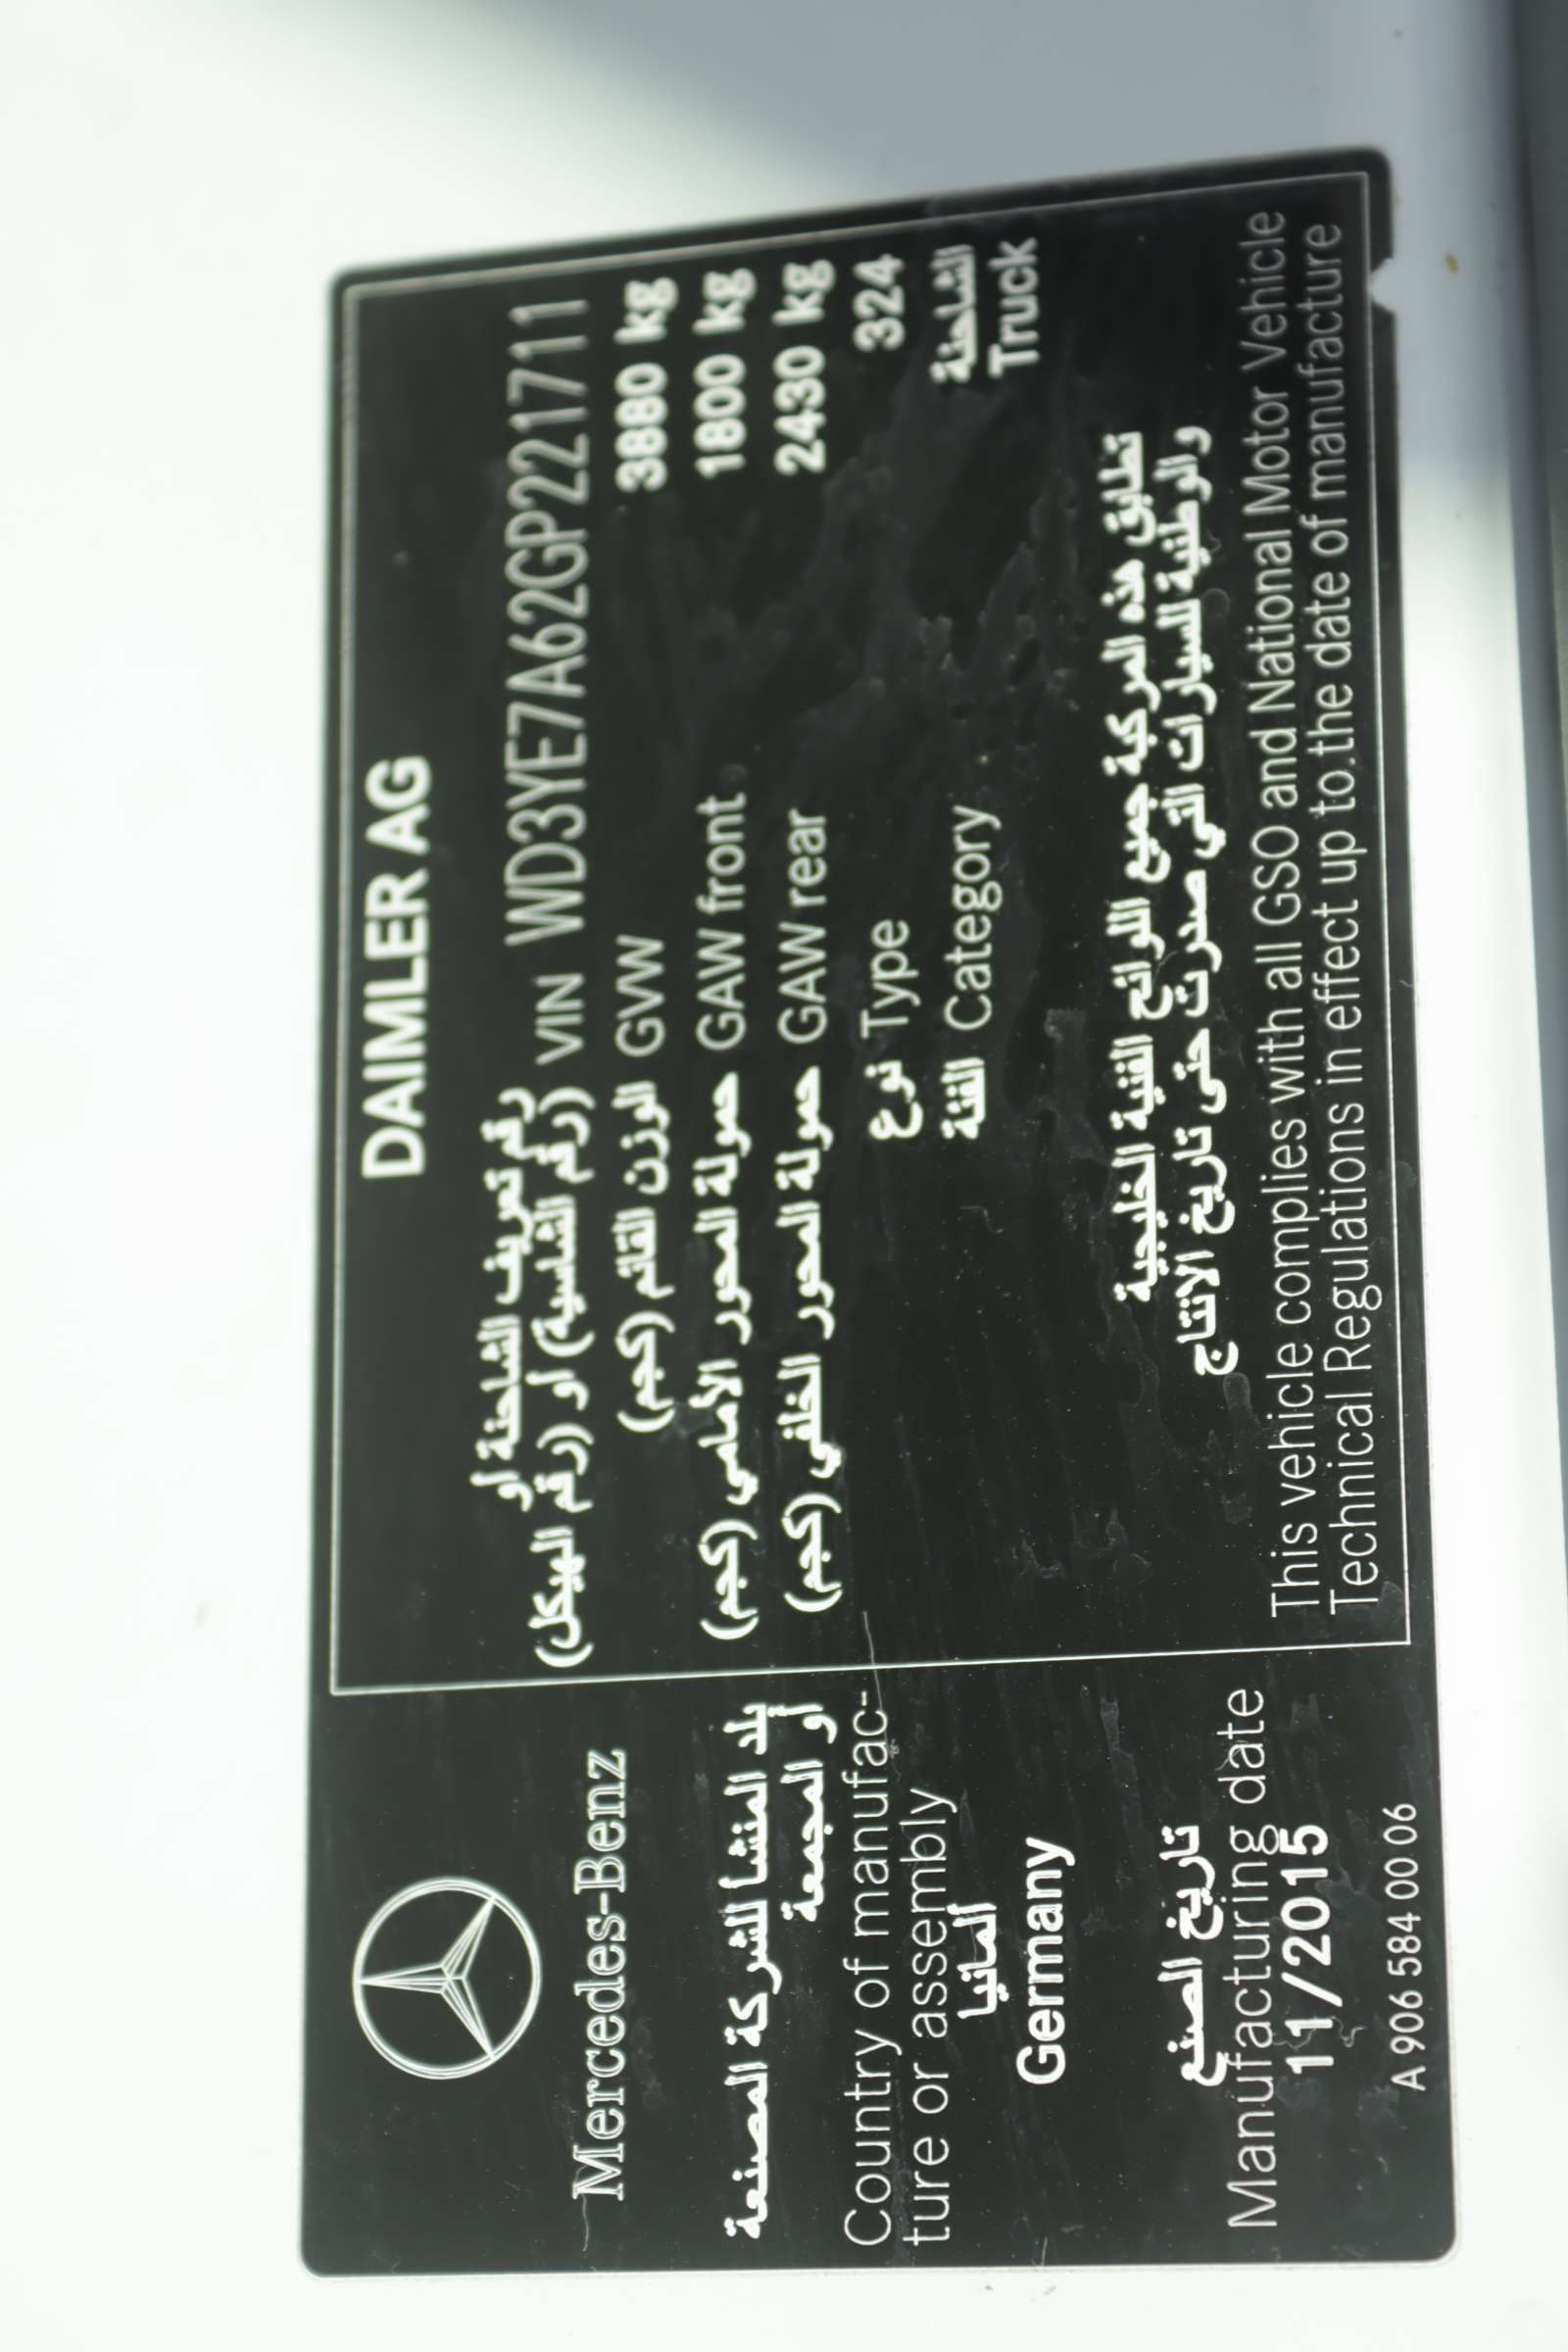 Mercedes-Benz
بلد المنشأ للشركة المصنعة
أو المجمعة
Country of manufac-
ture or assembly
ألمانيا
Germany
تاريخ الصنع
Manufacturing date
11/2015
A 906 584 00 06
DAIMLER AG
رقم تعريف الشاحنة أو
(رقم الشاسية) أو (رقم الهيكل) VIN WD3YE7A62GP221711
الوزن القائم (كجم) GVW 3880 kg
حمولة المحور الأمامي (كجم) GAW front 1800 kg
حمولة المحور الخلفي (كجم) GAW rear 2430 kg
نوع Type 324
الفئة Category الشاحنة
Truck
تطابق هذه المركبة جميع اللوائح الفنية الخليجية
والوطنية للسيارات التي صدرت حتى تاريخ الانتاج
This vehicle complies with all GSO and National Motor Vehicle
Technical Regulations in effect up to the date of manufacture